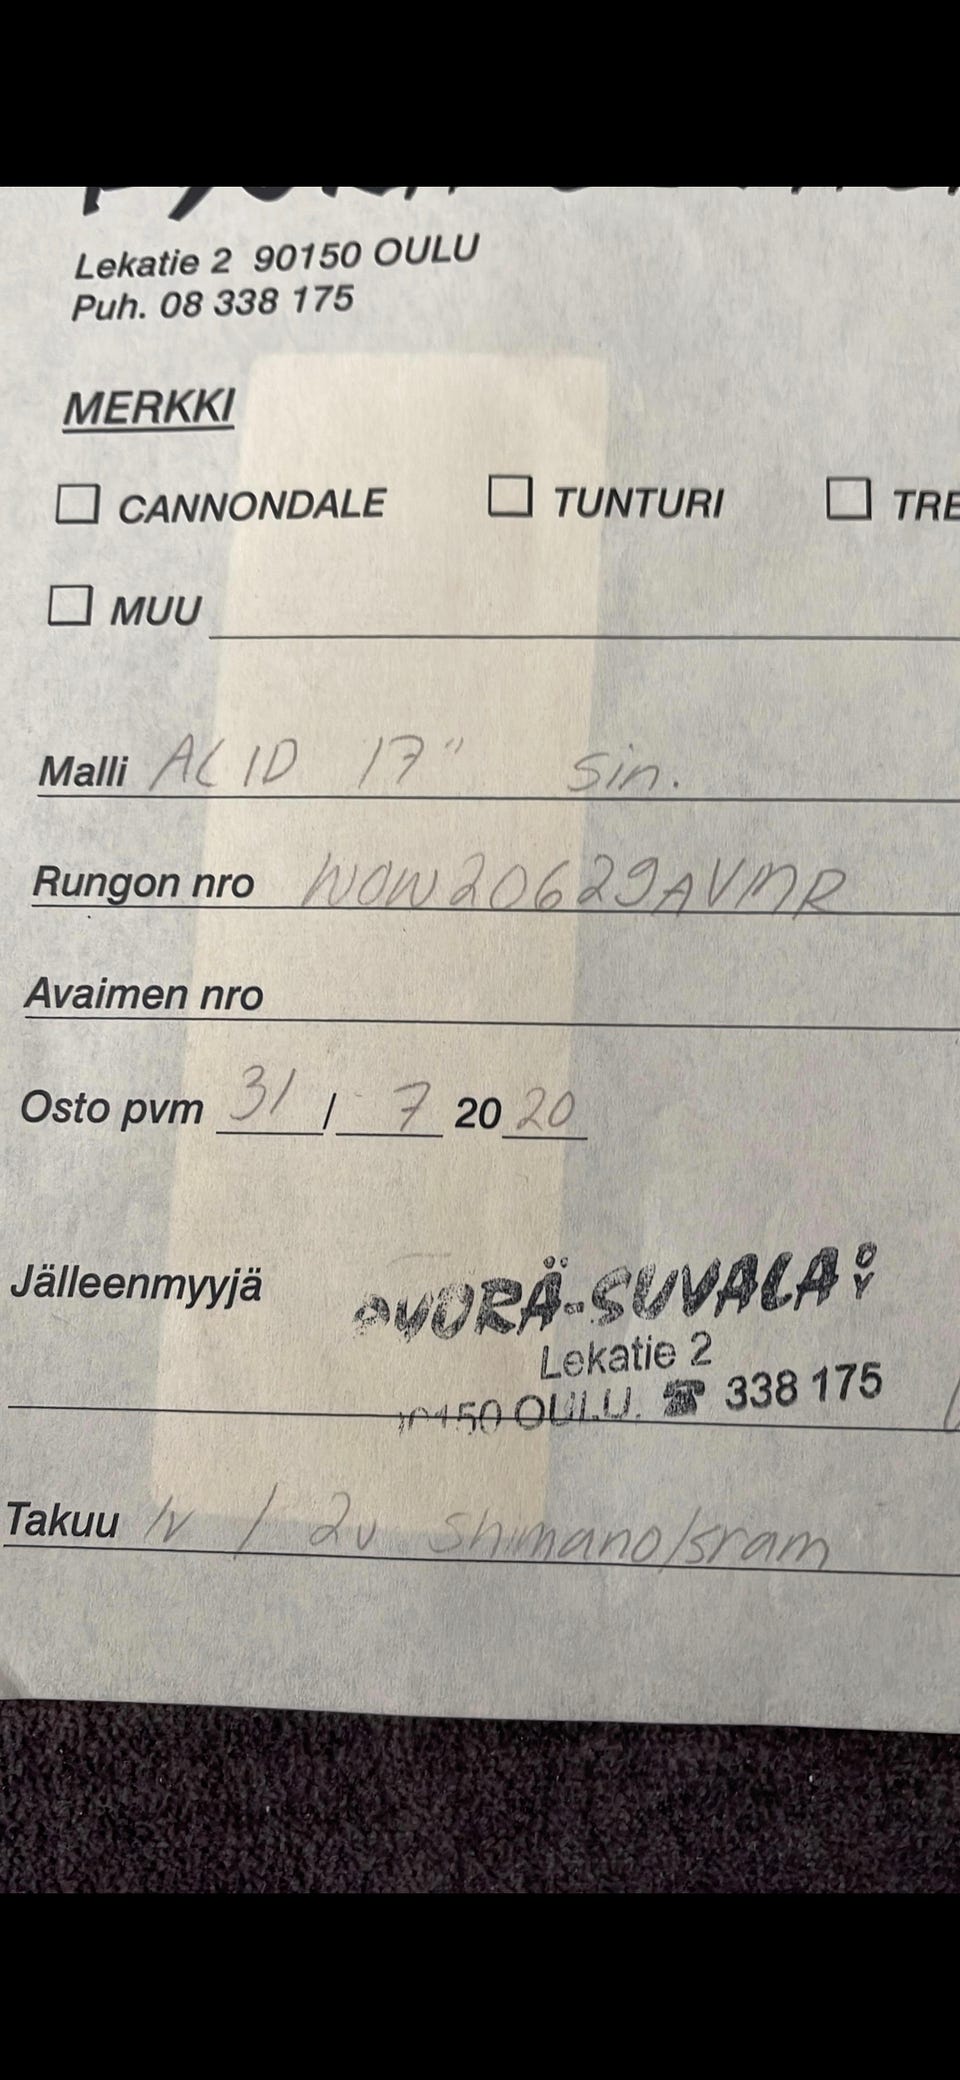 Lekatie 2 90150 OULU
Puh. 08 338 175
MERKKI
CANNONDALE TUNTURI TRE
MUU
Malli ACID 17" sin.
Rungon nro WOW20629AVMR
Avaimen nro
Osto pvm 31 / 7 2020
Jälleenmyyjä PYÖRÄ-SUVALA OY
Lekatie 2
90150 OULU. ☎ 338 175
Takuu 1v / 2v Shimano/sram